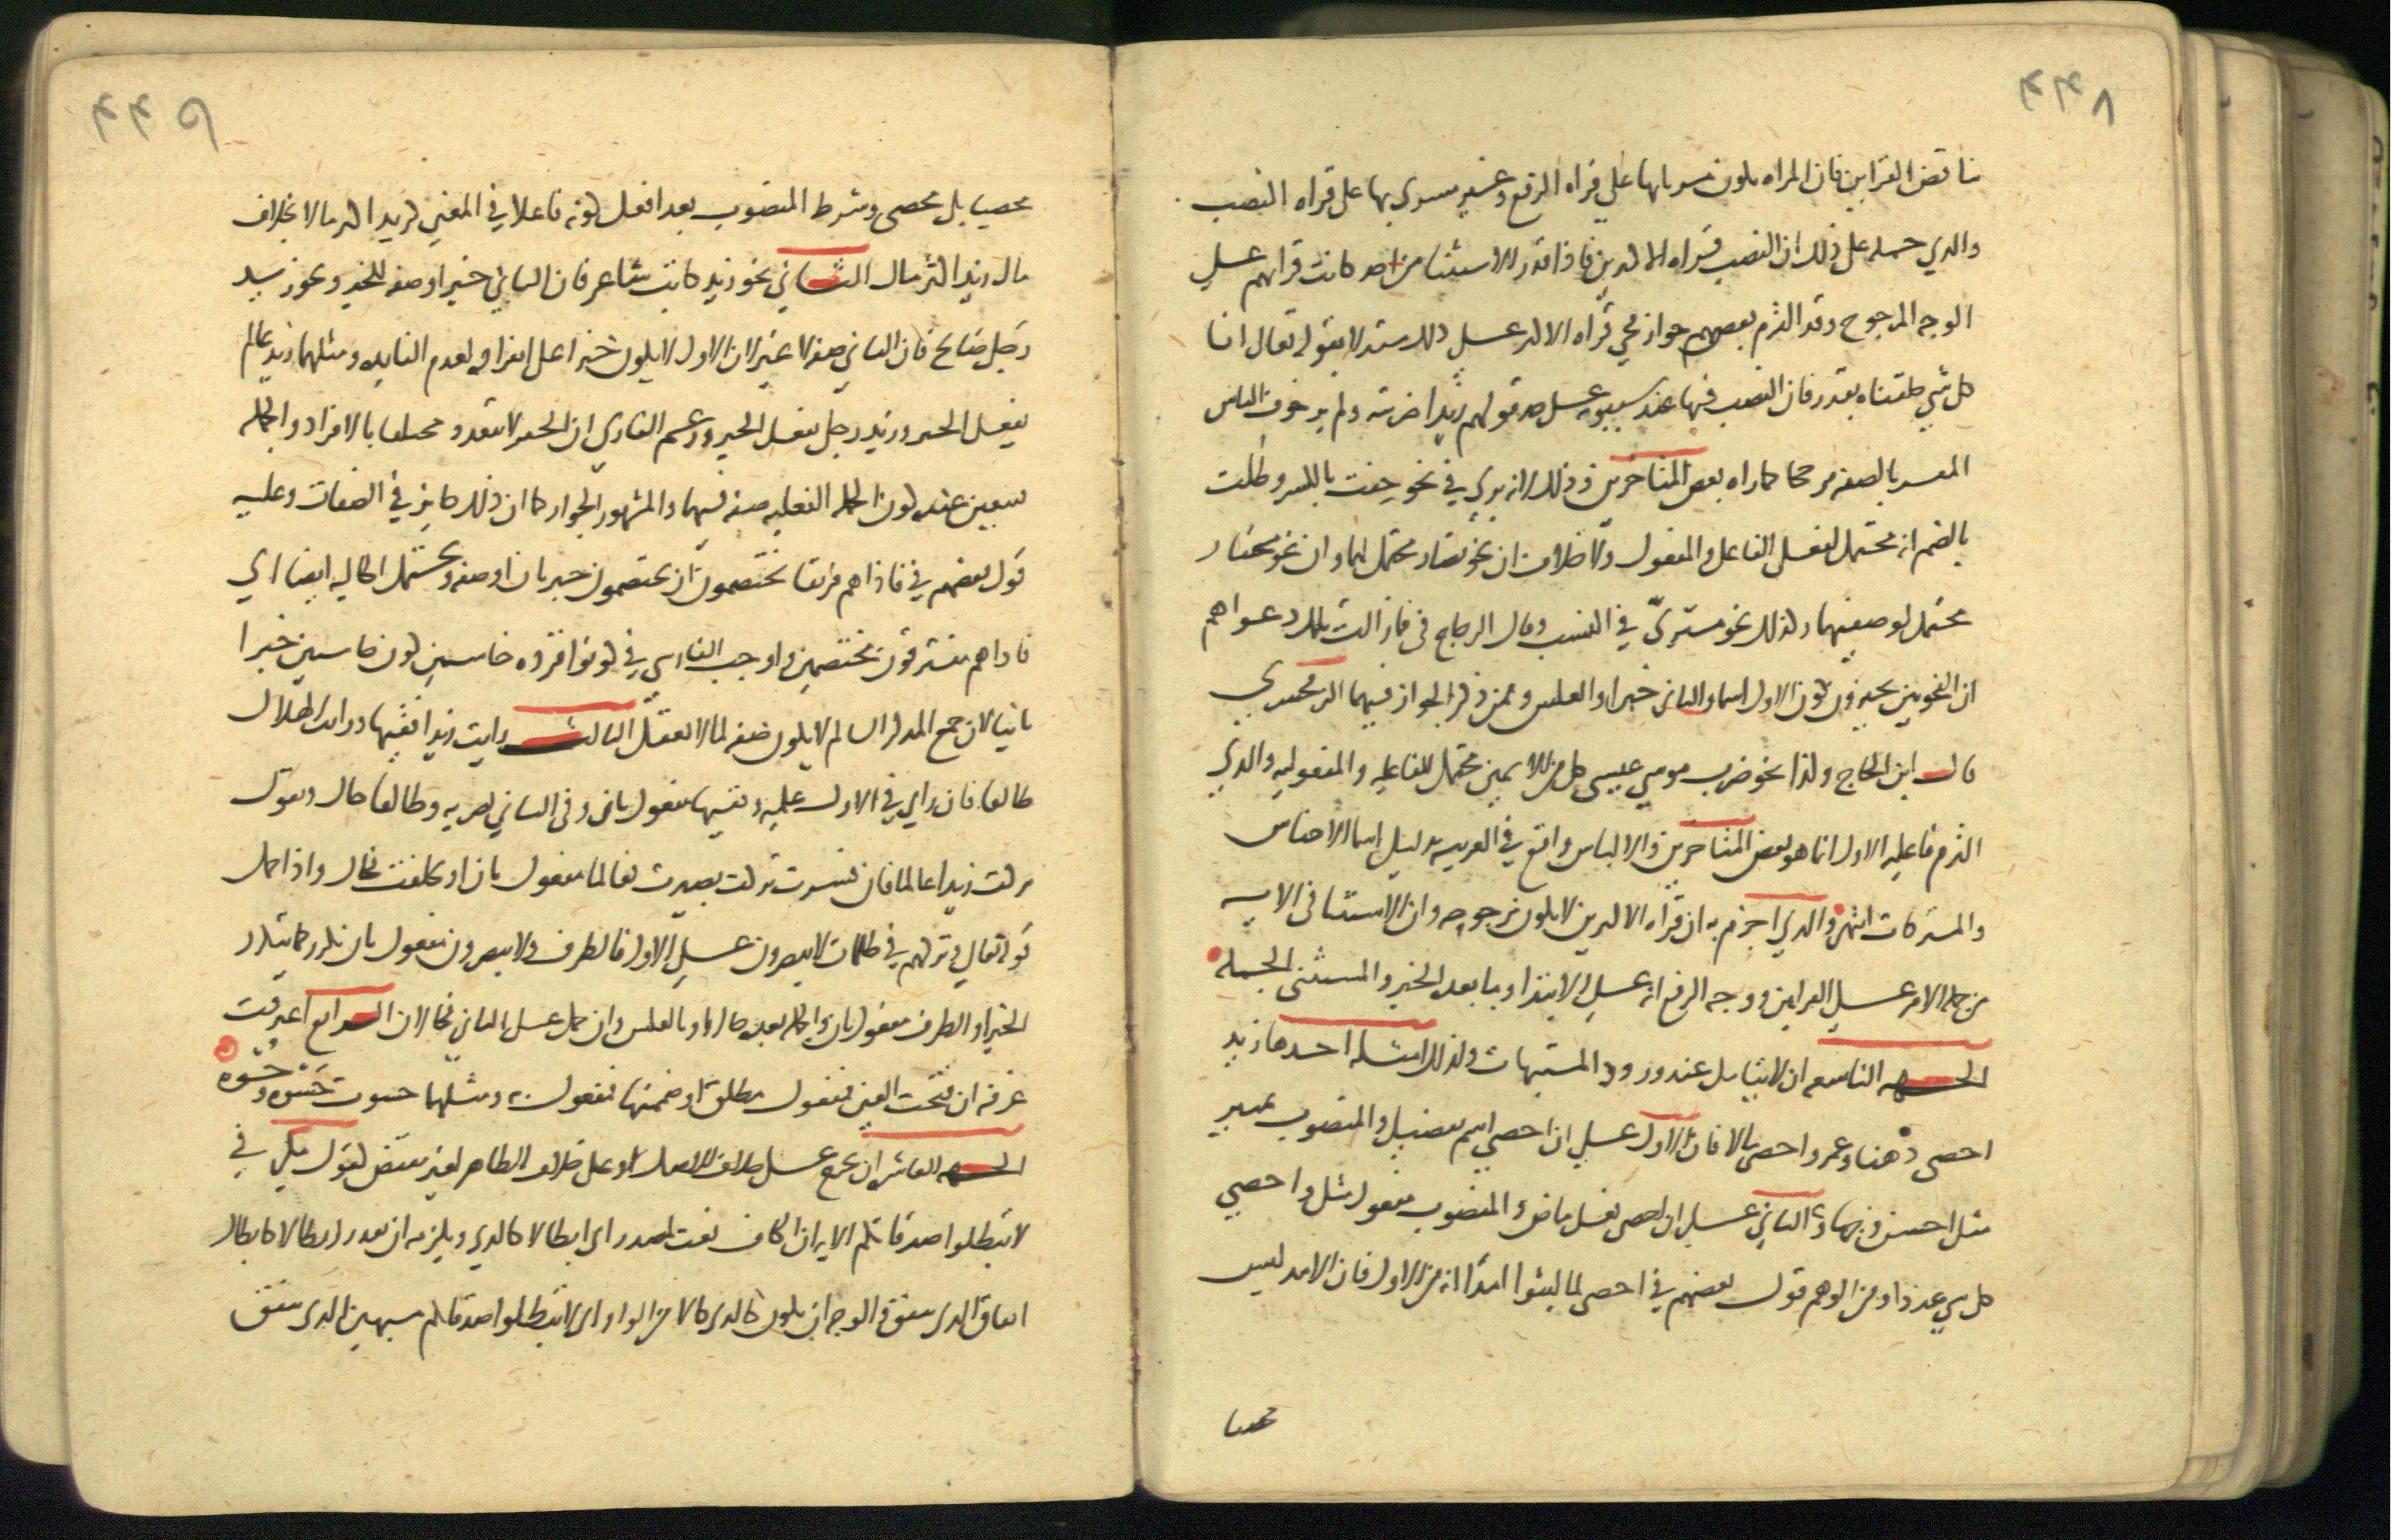 ۴۴۸
تناقض القراين فان المراه يكون مسريا بها علي قراه الرفع وغير مسري بها علي قراه النصب
والذي حمله علي ذلك ان النصب قراه الاكثرين فاذا قدر الاستثنا من احد كانت قراتهم علي
الوجه المرجوح وقد التزم بعضهم جواز مجي قراه الاكثر علي ذلك مستدلا بقوله تعالي انا
كل شي خلقناه بقدر فان النصب فيها عند سيبويه علي حد قولهم زيدا ضربته ولم ير خوف الباس
المفسر بالصفه مرجحا كما راه بعض المتاخرين وذلك لانه يري في نحو خفت بالكسر وطلت
بالضم انه محتمل لفعل الفاعل والمفعول ولا خلاف ان نحو تضار محتمل لهما وان نحو مختار
محتمل لوصفيهما وكذلك نحو مشتري في النسب وقال الزجاج في فما زالت تلك دعواهم
ان النحويين يجيزون كون الاول اسما والثاني خبرا والعكس وممن ذكر الجواز فيهما الزمخشري
قال ابن الحاج وكذا نحو ضرب موسي عيسي كل من الاسمين محتمل للفاعليه والمفعوليه والذي
التزم فاعليه الاول انما هو بعض المتاخرين والالباس واقع في العربيه بدليل اسما الاجناس
والمشتركات انتهي والذي اجزم به ان قراه الاكثرين لا يكون مرجوحه وان الاستثنا في الايه
من جمله الامر علي القراتين ووجه الرفع انه علي الابتدا وما بعده الخبر والمستثني الجمله
الجهه التاسعه ان لا يتامل عند ورود المشتبهات ولذلك امثله احدها زيد
احصي ذهنا وعمرو احصي مالا فان الاول علي ان احصي اسم تفضيل والمنصوب تمييز
مثل احسن وجها والثاني علي ان احصي فعل ماض والمنصوب مفعول مثل واحصي
كل شي عددا ومن الوهم قول بعضهم في احصي لما لبثوا امدا انه من الاول فان الامد ليس
محصيا
۴۴۹
محصيا بل محصي وشرط المنصوب بعد افعل كونه فاعلا في المعني كزيد اكثر مالا بخلاف
مال زيد اكثر مال الثاني نحو زيد كاتب شاعر فان الثاني خبر او صفه للخبر ونحو زيد
رجل صالح فان الثاني صفه لا غير لان الاول لا يكون خبرا علي انفراده لعدم الفايده ومثلهما زيد عالم
يفعل الخير وزيد رجل يفعل الخير وزعم الفارسي ان الخبر لا يتعدد مختلفا بالافراد والجمله
فيتعين عنده كون الجمله الفعليه صفه فيهما والمشهور الجواز كما ان ذلك جايز في الصفات وعليه
قول بعضهم في فاذا هم فريقان يختصمون ان يختصمون خبر ثان او صفه ويحتمل الحاليه ايضا اي
فاذا هم مفترقون مختصمين واوجب الفارسي في كونوا قرده خاسيين كون خاسيين خبرا
ثانيا لان جمع المذكر السالم لا يكون صفه لما لا يعقل الثالث رايت زيدا فقيها ورايت الهلال
طالعا فان راي في الاول علميه وفقيها مفعول ثاني وفي الثاني بصريه وطالعا حال وتقول
تركت زيدا عالما فان فسرت تركت بصيرت فعالما مفعول ثان او بخلفت فحال واذا حمل
قوله تعالي وتركهم في ظلمات لا يبصرون علي الاول فالظرف ولا يبصرون مفعول ثان تكرر كما يتكرر
الخبر او الظرف مفعول ثان والجمله بعده حال او بالعكس وان حمل علي الثاني فحالان الرابع اغترفت
غرفه ان فتحت الغين فمفعول مطلق او ضممتها فمفعول به ومثلهما حسوت حسوه وحسوه
الجهه العاشره ان يخرج علي خلاف الاصل او علي خلاف الظاهر لغير مقتض كقول مكي في
لا تبطلوا صدقاتكم الايه ان الكاف نعت لمصدر اي ابطالا كالذي ويلزمه ان يقدر ابطالا كابطال
انفاق الذي ينفق والوجه ان يكون كالذي حالا من الواو اي لا تبطلوا صدقاتكم مشبهين الذي ينفق